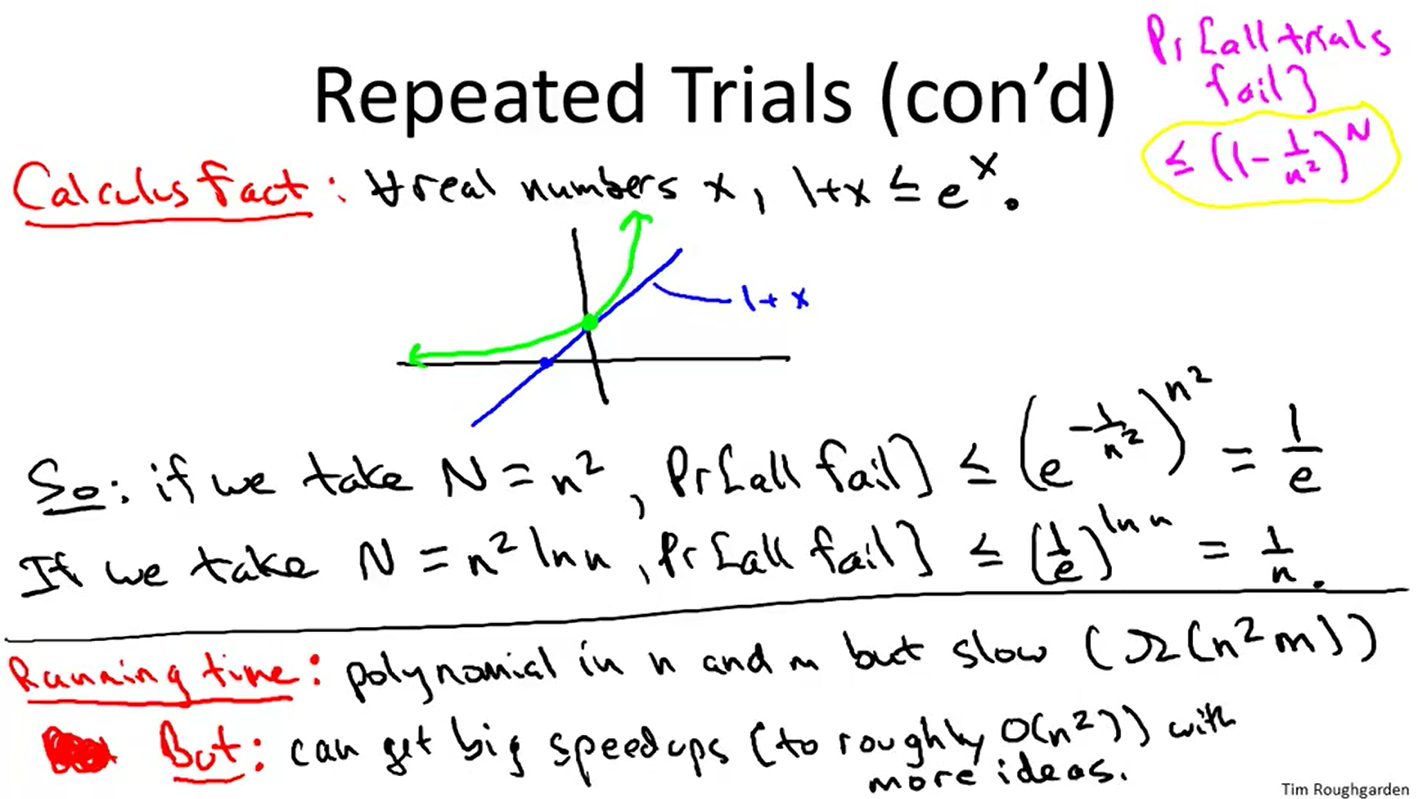 Repeated Trials (con’d)
Pr[all trials
fail]
≤ (1 - 1/n²)^N
Calculus fact: ∀ real numbers x, 1+x ≤ e^x.
1+x
So: if we take N = n², Pr[all fail] ≤ (e^(-1/n²))^(n²) = 1/e
If we take N = n² ln n, Pr[all fail] ≤ (1/e)^(ln n) = 1/n.
Running time: polynomial in n and m but slow (Ω(n²m))
But: can get big speedups (to roughly O(n²)) with
more ideas.
Tim Roughgarden